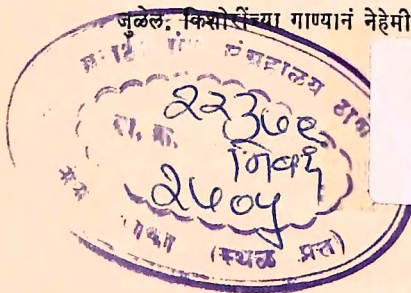 जुळेल. किशोरींच्या गाण्यानं नेहेमी
मराठी ग्रंथ संग्रहालय ठाणे
दा. क्र. २२३७९
निबंध
२५०५
(स्थळ प्रत)